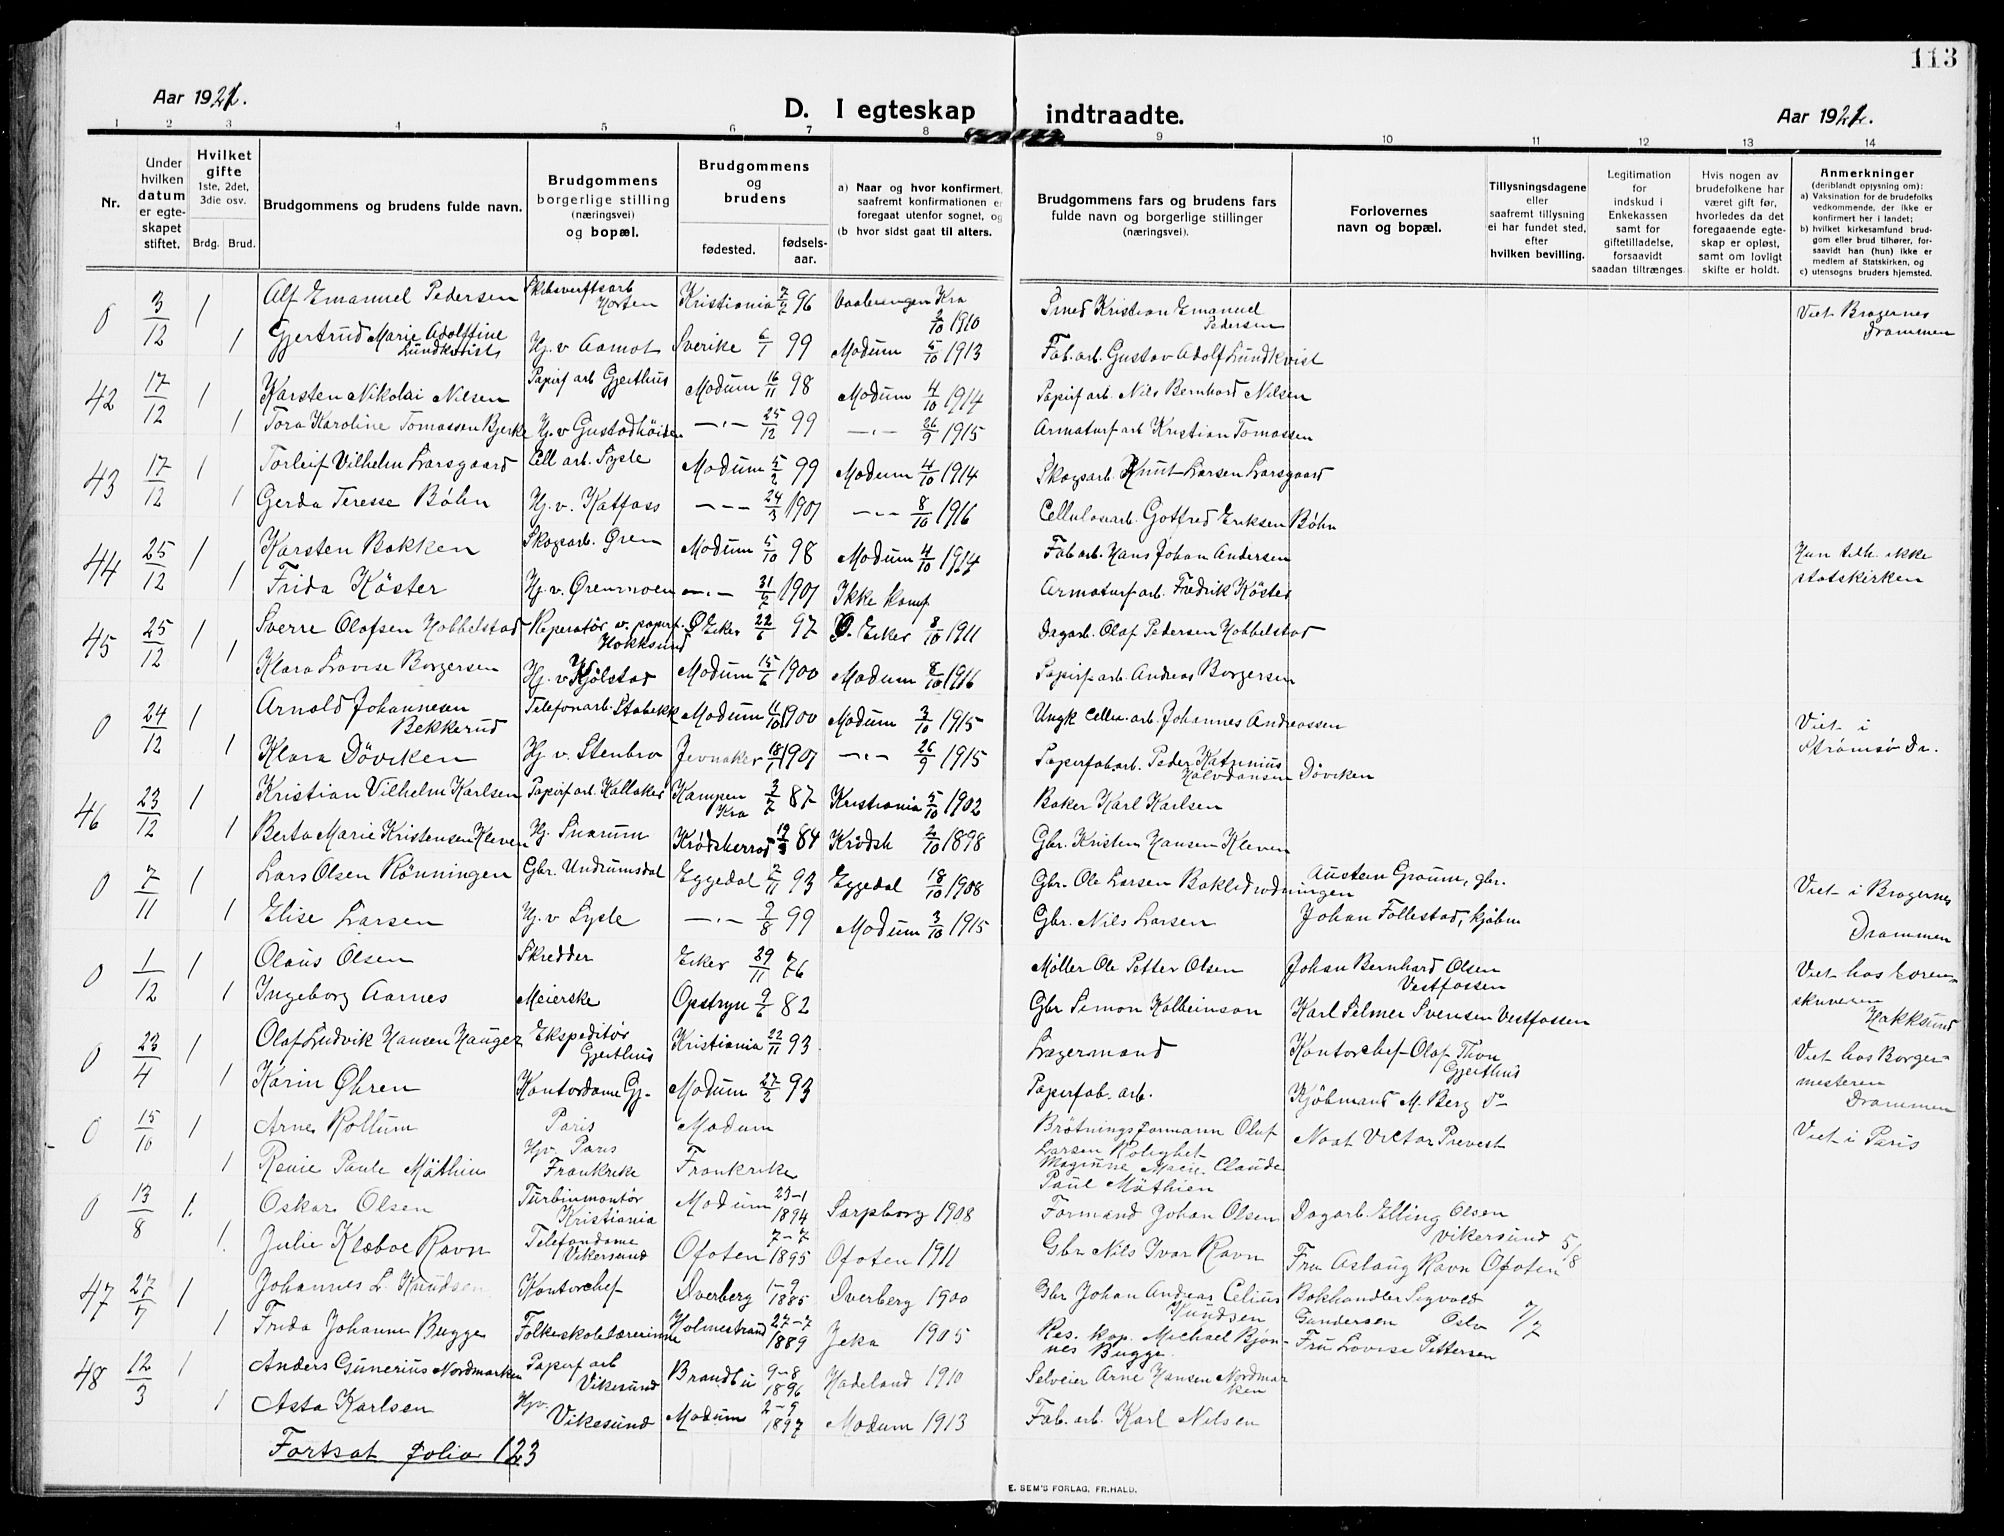 113
Aar 1921.
D. I egteskap indtraadte.
Aar 1921.
1 2 3 4 5 6 7 8 9 10 11 12 13 14
Nr.
Under hvilken datum er egteskapet stiftet.
Hvilket gifte 1ste, 2det, 3die osv.
Brdg. Brud.
Brudgommens og brudens fulde navn.
Brudgommens borgerlige stilling (næringsvei) og bopæl.
Brudgommens og brudens
fødested. fødselsaar.
a) Naar og hvor konfirmert, saafremt konfirmationen er foregaat utenfor sognet, og
b hvor sidst gaat til alters.
Brudgommens fars og brudens fars fulde navn og borgerlige stillinger (næringsvei).
Forlovernes navn og bopæl.
Tillysningsdagene eller saafremt tillysning ei har fundet sted, efter hvilken bevilling.
Legitimation for indskud i Enkekassen samt for giftetilladelse, forsaavidt saadan tiltrænges.
Hvis nogen av brudefolkene har været gift før, hvorledes da det foregaaende egteskap er opløst, samt om lovligt skifte er holdt.
Anmerkninger (deriblandt opjysning om):
a) Vaksination for de brudefolks vedkommende, der ikke er konfirmert her i landet;
b) hvilket kirkesamfund brudgom eller brud tilhører, forsaavidt han (hun) ikke er medlem af Statskirken, og
c) utensogns bruders hjemsted.
0 3/12 1 Alf Emanuel Pedersen Skibsverftsarb Horten Kristiania 7/2 96 Vaalerengen Kra 2/10 1910 Smed Kristian Emanuel Pedersen Viet Bragernes Drammen
1 Gjertrud Marie Adolffine Lundkvist Hj. v Aamot Sverike 6/1 99 Modum 5/10 1913 Fab. arb. Gustav Adolf Lundkvist
42 17/12 1 Karsten Nikolai Nilsen Papirf arb Gjeithus Modum 16/11 98 Modum 4/10 1914 Papirf arb. Nils Bernhard Nilsen
1 Tora Karoline Tomassen Bjerke Hj. v Gustadhöiden —"— 25/12 99 —"— 26/9 1915 Armaturf arb Kristian Tomassen
43 17/12 1 Torleif Vilhelm Larsgaard Cell arb. Sysle Modum 5/2 99 Modum 4/10 1914 Skogsarb. Knut Larsen Larsgaard
1 Gerda Teresse Bøhn Hj. v. Katfoss — — — 24/3 1901 —"— 8/10 1916 Cellulosearb. Gotfred Eriksen Bøhn
44 25/12 1 Karsten Bakken Skogsarb. Øren Modum 5/10 98 Modum 4/10 1914 Fab arb. Hans Johan Andersen Hun tilh. ikke statskirken
1 Frida Köster Hj. v. Ørenmoen —"— 31/7 1901 Ikke konf Armaturf arb. Fredrik Köster
45 25/12 1 Sverre Olafsen Hobbelstad Reperatör v. papirf. Hokksund Ø Eiker 22/6 97 Ø. Eiker 8/10 1911 Dagarb. Olaf Pedersen Hobbelstad
1 Klara Lovise Borgersen Hj. v Kjölstad Modum 15/6 1900 Modum 8/10 1916 Papirf arb. Andreas Borgersen
0 24/12 1 Arnold Johannesen Bekkerud Telefonarb. Stabekk Modum 11/10 1900 Modum 3/10 1915 Ungk Cellu. arb. Johannes Andreassen Viet i Strømsø Dr.
1 Klara Döviken Hj v. Stenbro Jevnaker 18/1 1901 —"— 26/9 1915 Papirfab arb. Peder Katrinius Halvdansen Döviken
46 23/12 1 Kristian Vilhelm Karlsen Papirf arb. Kallaker Kampen Kra 3/7 87 Kristiania 5/10 1902 Baker Karl Karlsen
1 Berta Marie Kristensen Kleven Hj. Snarum Krødsherrad 19/3 84 Krödsh 2/10 1898 Gbr. Kristen Hansen Kleven
0 7/11 1 Lars Olsen Rönningen Gbr. Undrumsdal Eggedal 2/11 93 Eggedal 18/10 1908 Gbr. Ole Larsen Baklidrødningen Austein Graum, gbr. Viet i Bragernes Drammen
1 Elise Larsen Hj. v Sysle —"— 9/8 99 Modum 3/10 1915 Gbr. Nils Larsen Johan Follestad, kjøbm
0 1/12 1 Olaus Olsen Skredder Eiker 29/11 76 Møller Ole Petter Olsen Johan Bernhard Olsen Vestfossen Viet hos Sorenskriveren Hokksund
1 Ingeborg Aarnes Meierske Opstryn 9/6 82 Gbr Simon Kolbeinson Karl Selmer Svensen Vestfossen
0 23/4 1 Olaf Ludvik Hansen Hauger Ekspeditör Gjeithus Kristiania 22/11 93 Lagermand Kontorchef Olaf Thon Gjeithus Viet hos Borgermesteren Drammen
1 Karin Øhren Kontordame Gj. Modum 27/2 93 Papirfab. arb. Kjöbmand M. Berg do
0 15/10 1 Arne Rollum Paris Modum Brøtningsformann Olaf Larsen Rolighet Noat Victor Prevest Viet i Paris
1 Renie Paule Mäthieu Hjv. Paris Frankrike Frankrike Claude Paul Mäthien
0 13/8 1. Oskar Olsen Turbinmontör Kristiania Modum 23-1 1894 Sarpborg 1908 Formand Johan Olsen Dagarb Elling Olsen Vikersund 5/8
1. Julie Klæboe Ravn Telefondame Vikersund Ofoten 7-7 1895 Ofoten 1911 Gbr Nils Ivar Ravn Fru Aslaug Ravn Ofoten
47 27/7 1 Johannes L. Knudsen Kontorchef Dverberg 1-9 1885 Dverberg 1900 Gbr Johan Andreas Celius Knudsen Bokhandler Sigvald Gundersen Oslo 7/7
1 Frida Johanne Bugge Folkeskolelærerinne Holmestrand 27-7 1889 Jeka 1905 Res. kap. Michael Bjønnes Bugge Fru Lovise Pettersen
48 12/3 1 Anders Gunerius Nordmarken Papirf arb Vikesund Brandbu 9-8 1896 Hadeland 1910 Selveier Arne Hansen Nordmarken
1 Asta Karlsen Hjv. Vikesund Modum 2-9 1897 Modum 1913 Fab. arb. Karl Nilsen
Fortsat folio 123
E. SEM'S FORLAG, FR.HALD.